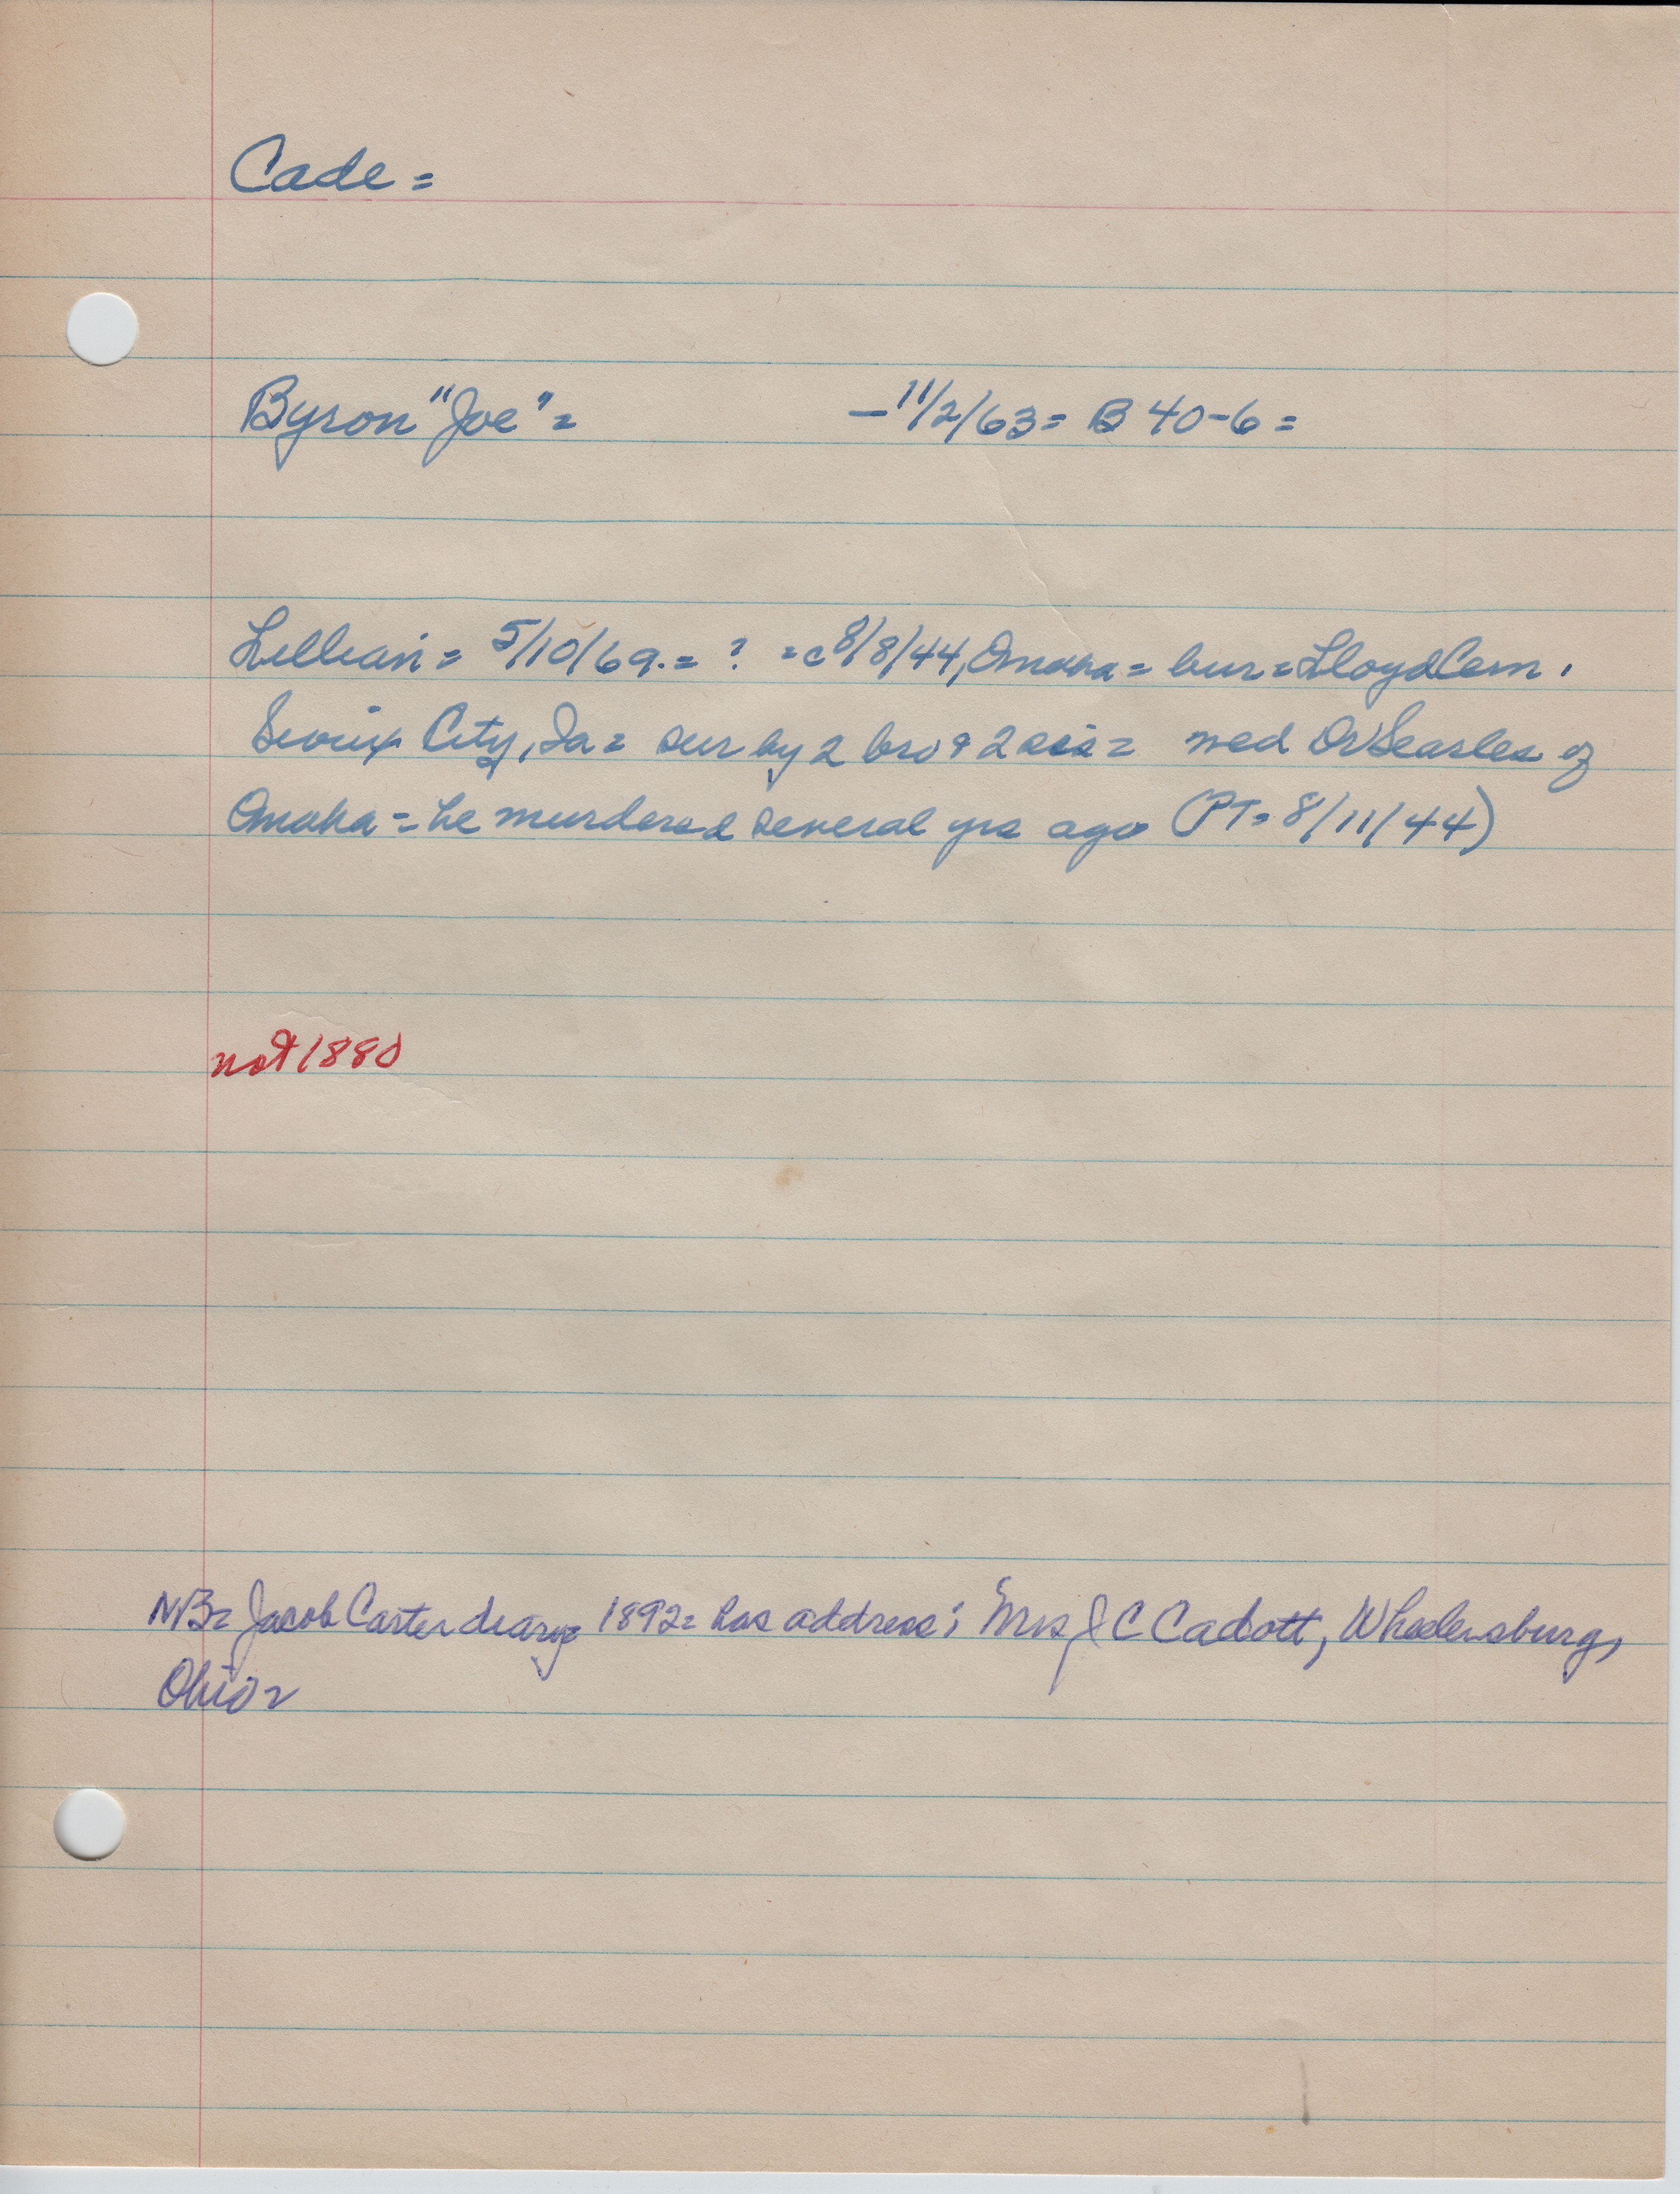 Cade =
Byron "Joe" = - 11/2/63 = B 40-6 =
Lillian = 5/10/69. = ? = c 8/8/44, Omaha = bur = Lloyd Cem.
Sioux City, Ia = sur by 2 bro & 2 sis = med Dr Searles of
Omaha = he murdered several yrs ago (PT = 8/11/44)
not 1880
NB = Jacob Carter diary = 1892 = has address; Mrs J C Cadott, Wheelersburg,
Ohio =